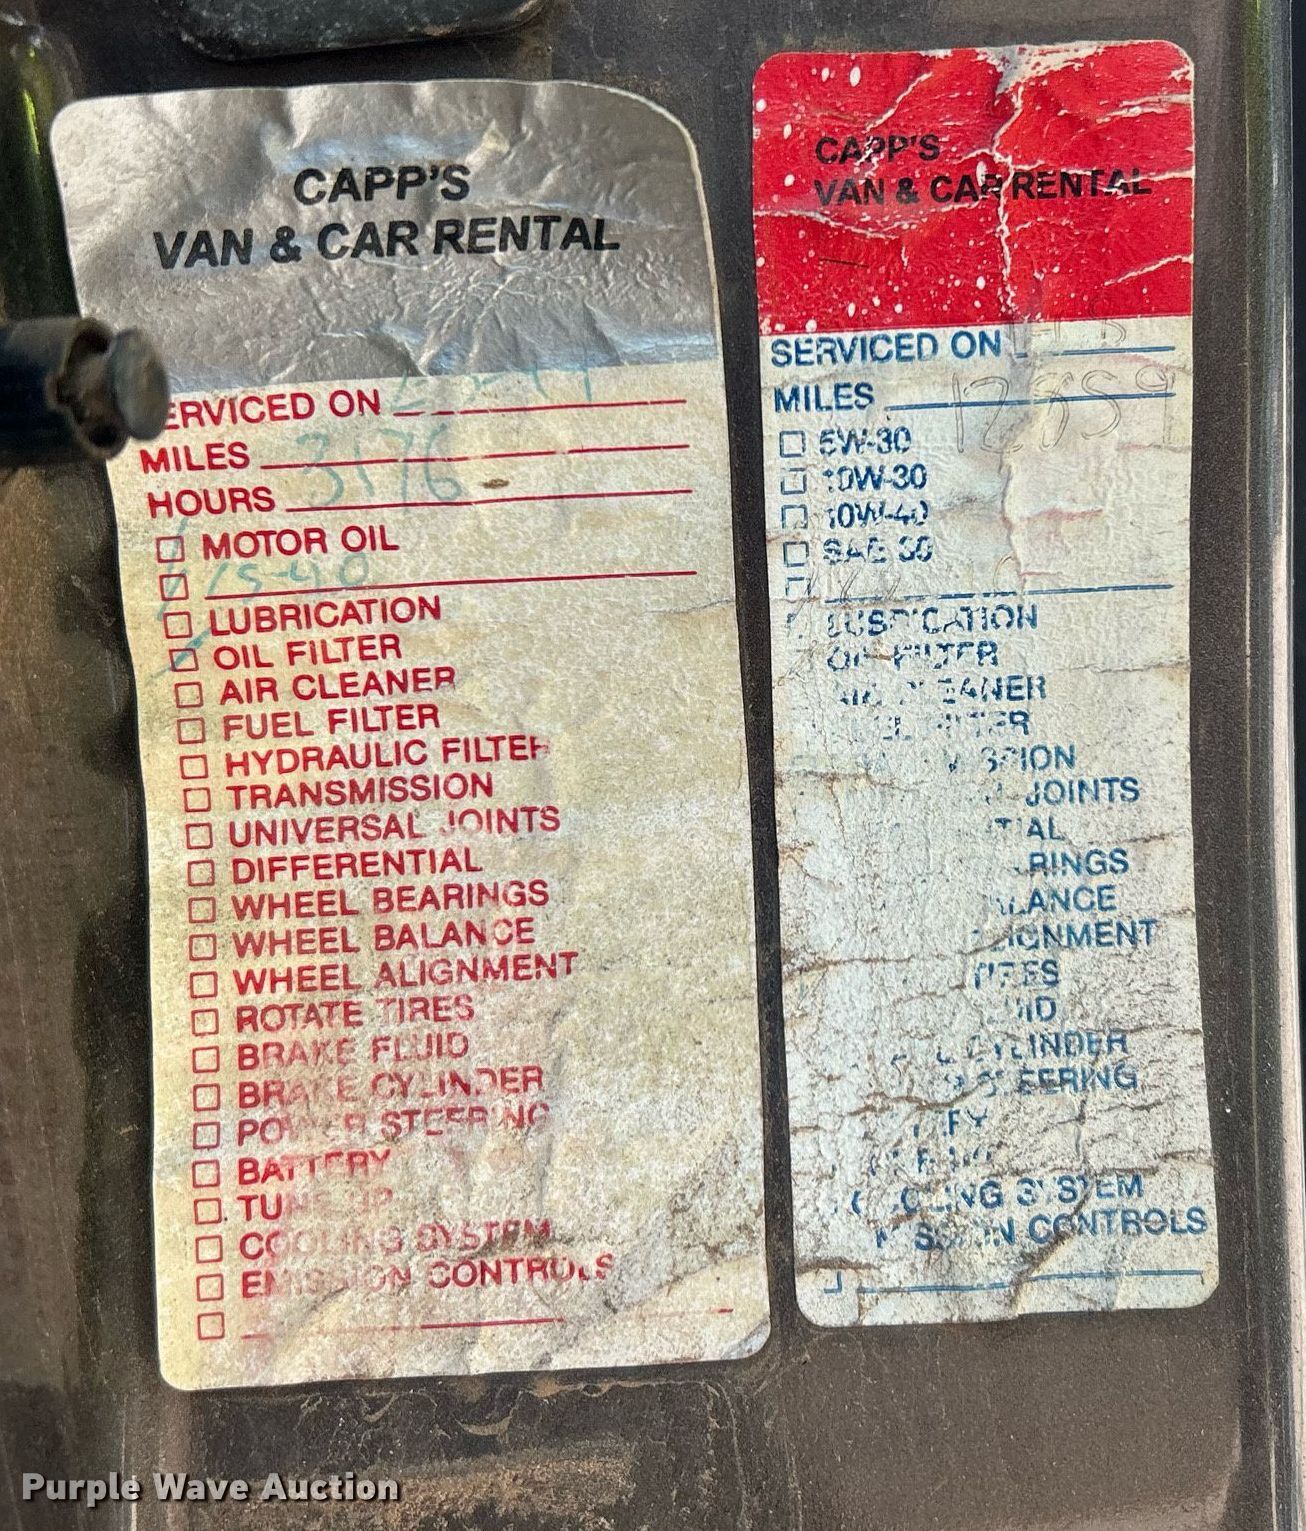 CAPP'S
VAN & CAR RENTAL
ERVICED ON
MILES 3176
HOURS
MOTOR OIL
15-40
LUBRICATION
OIL FILTER
AIR CLEANER
FUEL FILTER
HYDRAULIC FILTER
TRANSMISSION
UNIVERSAL JOINTS
DIFFERENTIAL
WHEEL BEARINGS
WHEEL BALANCE
WHEEL ALIGNMENT
ROTATE TIRES
BRAKE FLUID
BRAKE CYLINDER
POWER STEERING
BATTERY
TUNE UP
COOLING SYSTEM
EMISSION CONTROLS
CAPP'S
VAN & CAR RENTAL
SERVICED ON
MILES 12859
5W-30
10W-30
10W-40
SAE 30
LUBRICATION
OIL FILTER
CLEANER
FILTER
JOINTS
CYLINDER
STEERING
COOLING SYSTEM
CONTROLS
Purple Wave Auction